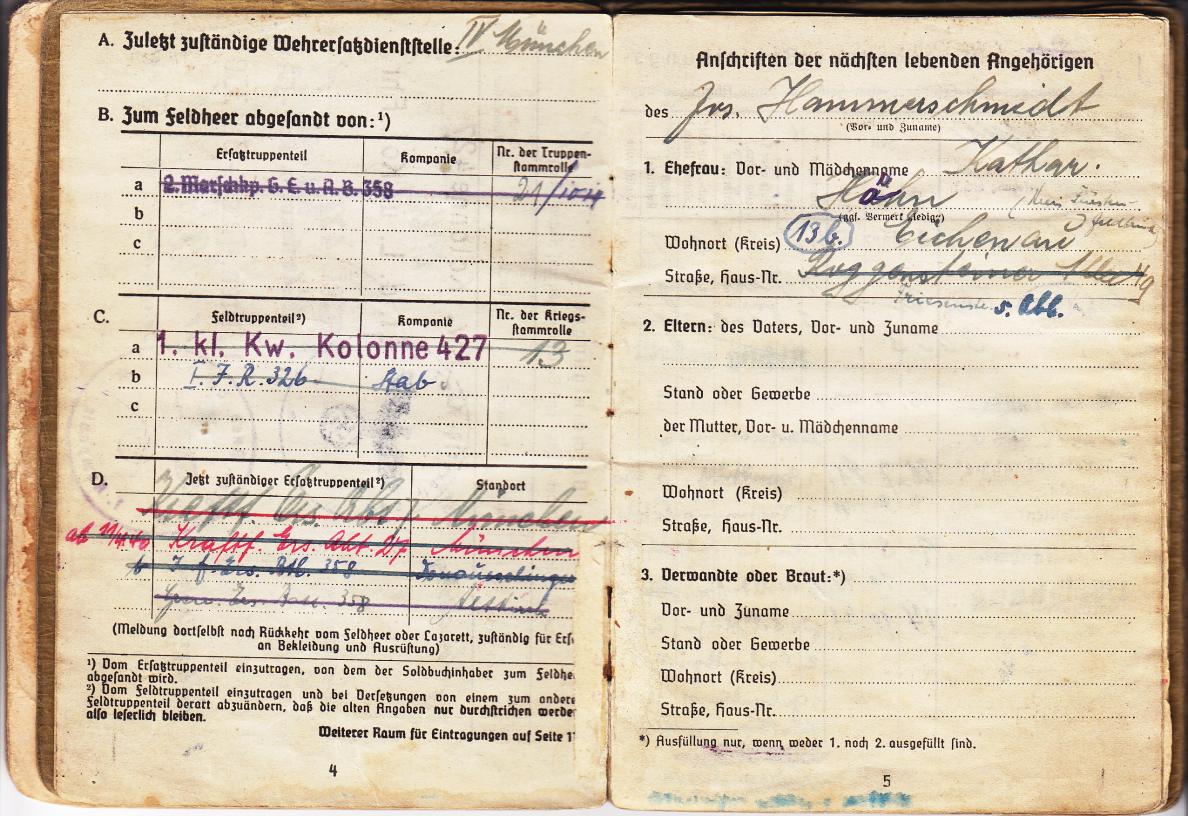 A. Zuletzt zuständige Wehrersatzdienststelle: IV München
B. Zum Feldheer abgesandt von:¹)
Ersatztruppenteil Kompanie Nr. der Truppenstammrolle
a 2. Marschkp. G. E. u. A. B. 358 21/
b
c
C. Feldtruppenteil²) Kompanie Nr. der Kriegsstammrolle
a 1. kl. Kw. Kolonne 427 13
b I. J. R. 326 Stab
c
D. Jetzt zuständiger Ersatztruppenteil²) Standort
Kraftf. Ers. Abt. 7 München
ab Kraftf. Ers. Abt. 27 München
J. f. Ers. Btl. 358 Donaueschingen
Gren. Ers. Batl. 358
(Meldung dortselbst nach Rückkehr vom Feldheer oder Lazarett, zuständig für Ers
an Bekleidung und Ausrüstung)
¹) Vom Ersatztruppenteil einzutragen, von dem der Soldbuchinhaber zum Feldhe
abgesandt wird.
²) Vom Feldtruppenteil einzutragen und bei Versetzungen von einem zum andere
Feldtruppenteil derart abzuändern, daß die alten Angaben nur durchstrichen werde
also leserlich bleiben.
Weiterer Raum für Eintragungen auf Seite 1
4
Anschriften der nächsten lebenden Angehörigen
des Jos. Hammerschmidt
(Vor- und Zuname)
1. Ehefrau: Vor- und Mädchenname Kathar.
Hahn
(ggf. Vermerk „ledig")
Wohnort (Kreis) 13b. Eichenau
Straße, Haus-Nr. Roggensteiner Allee
s. Obb.
2. Eltern: des Vaters, Vor- und Zuname
Stand oder Gewerbe
der Mutter, Vor- u. Mädchenname
Wohnort (Kreis)
Straße, Haus-Nr.
3. Verwandte oder Braut:*)
Vor- und Zuname
Stand oder Gewerbe
Wohnort (Kreis)
Straße, Haus-Nr.
*) Ausfüllung nur, wenn weder 1. noch 2. ausgefüllt sind.
5